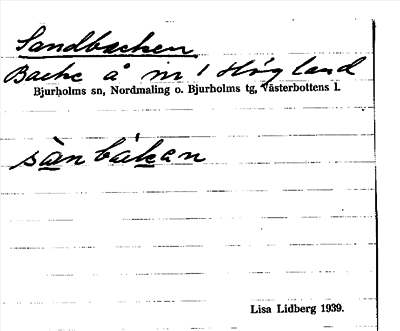 Sandbacken
Backe å nr 1 Högland
Bjurholms sn, Nordmaling o. Bjurholms tg, Västerbottens l.
sàn bákan
Lisa Lidberg 1939.